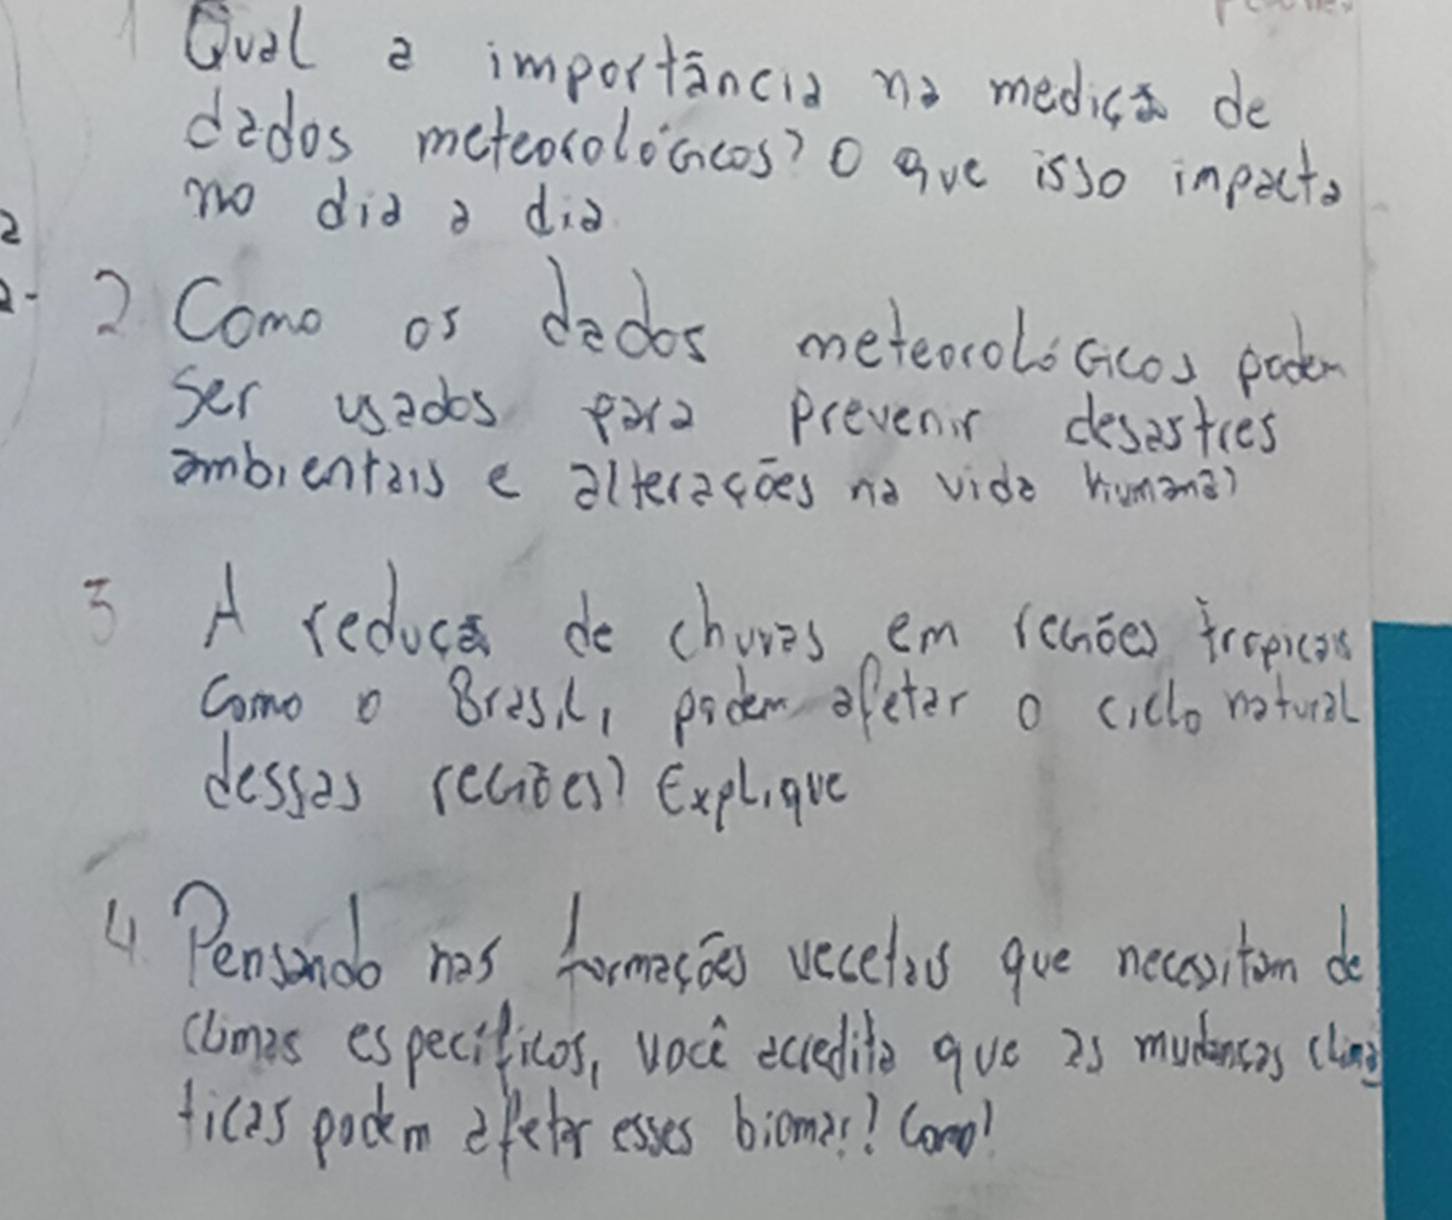 1 Qual a importância na mediçã de
dados meteorológicos? O que isso impacta
no dia a dia
2
2-
2 Como os dados meteorológicos podem
ser usados para prevenir desastres
ambientais e alterações na vida humana?
3 A reduçã de chuvas em regiões tropicais
como o Brasil, podem afetar o ciclo natural
dessas regiões? Explique
4. Pensando nas formações vegetais que necessitam de
climas específicos, você acredita que as mudanças climá
ticas podem afetar esses biomas? Como?